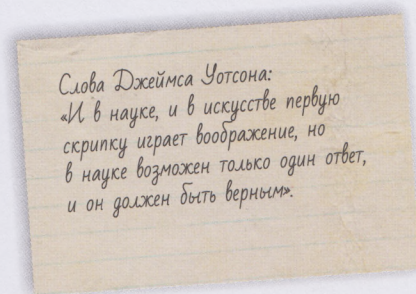 Слова Джеймса Уотсона:
«И в науке, и в искусстве первую
скрипку играет воображение, но
в науке возможен только один ответ,
и он должен быть верным».